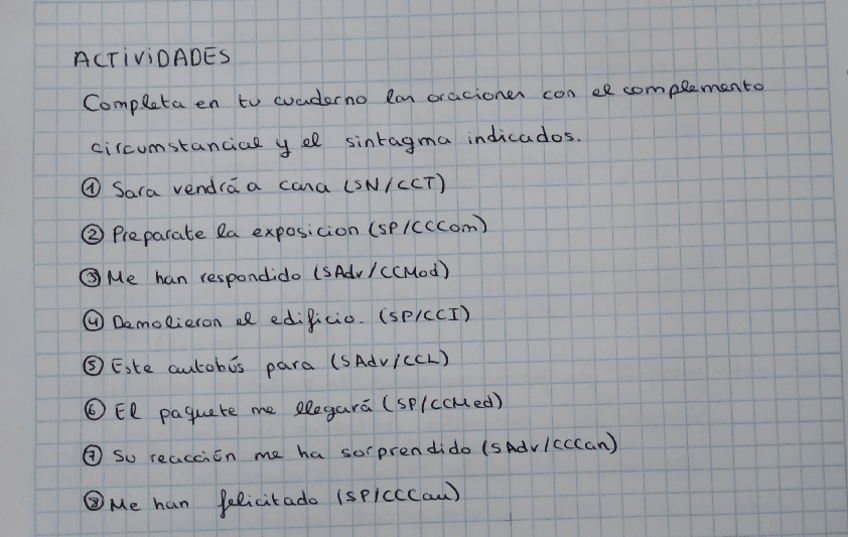 ACTIVIDADES
Completa en tu cuaderno las oraciones con el complemento
circumstancial y el sintagma indicados.
① Sara vendrá a casa (SN/CCT)
② Preparate la exposicion (SP/CCCom)
③ Me han respondido (SAdv/CCMod)
④ Demolieron el edificio. (SP/CCI)
⑤ Este autobús para (SAdv/CCL)
⑥ El paquete me llegará (SP/CCMed)
⑦ Su reacción me ha sorprendido (SAdv/CCCan)
⑧ Me han felicitado (SP/CCCau)